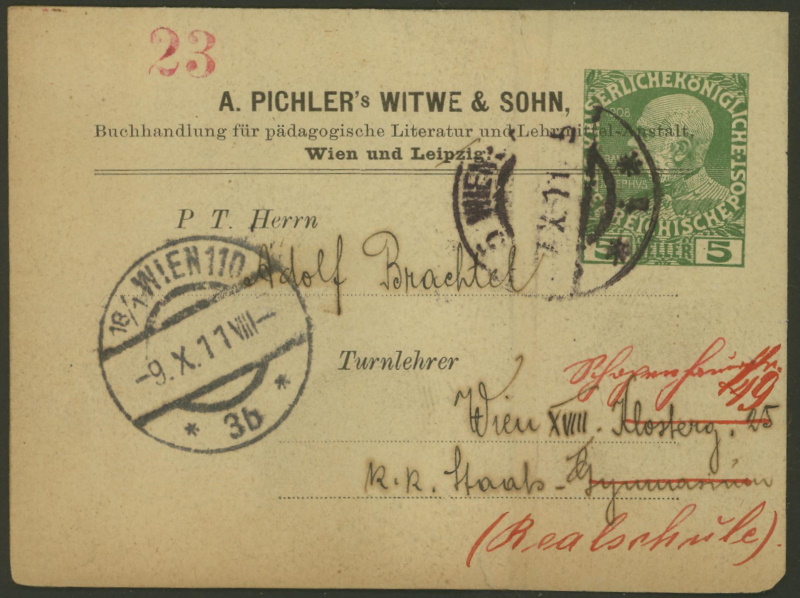 23
A. PICHLER's WITWE & SOHN,
Buchhandlung für pädagogische Literatur und Lehrmittel-Anstalt,
Wien und Leipzig.
1908
KAISERLICHEKÖNIGLICHE
ÖSTERREICHISCHEPOST
5 HELLER 5
WIEN
X 11
P T. Herrn
Adolf Brachtel
18/1 WIEN 110
-9. X. 11 VIII-
* 3b *
Turnlehrer
Schopenhauerstr.
49
Wien XVIII. Klosterg. 25
k. k. Staats-Gymnasium
(Realschule).